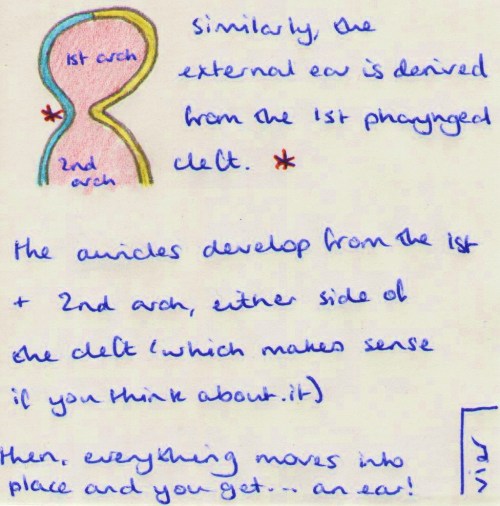 1st arch
2nd
arch
*
Similarly, the
external ear is derived
from the 1st pharyngeal
cleft. *
the auricles develop from the 1st
+ 2nd arch, either side of
the cleft (which makes sense
if you think about it)
Then, everything moves into
place and you get... an ear!